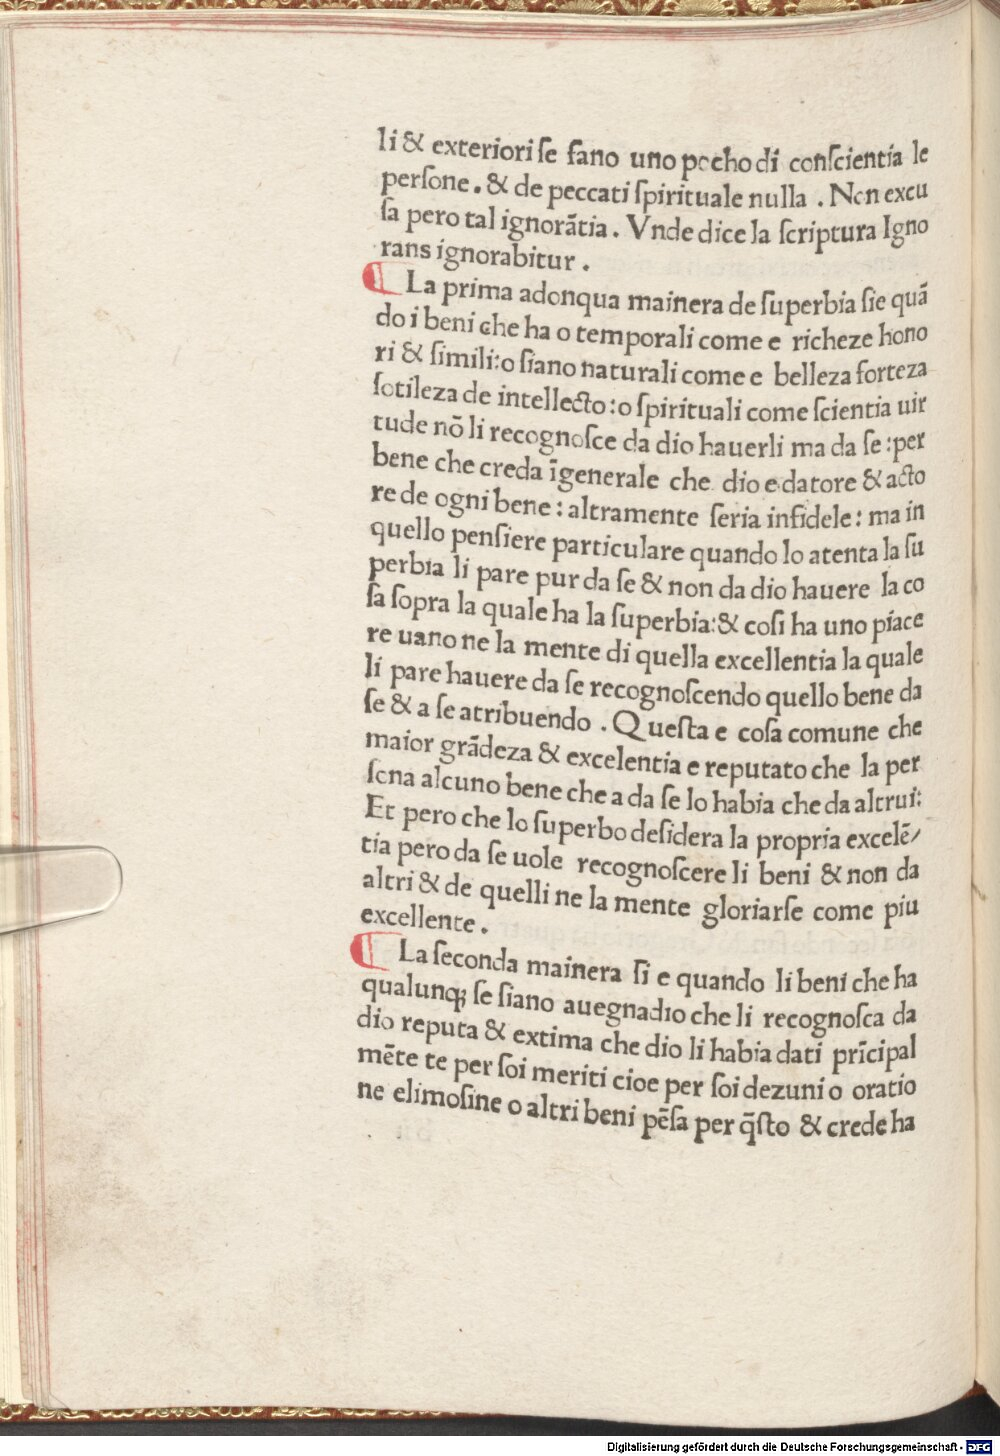 li & exteriori ſe fano uno pocho di conſcientia le
perſone . & de peccati ſpirituale nulla . Non excu
ſa pero tal ignorãtia . Vnde dice la ſcriptura Igno
rans ignorabitur .
¶ La prima adonqua mainera de ſuperbia ſie quã
do i beni che ha o temporali come e richeze hono
ri & ſimili:o ſiano naturali come e belleza forteza
ſotileza de intellecto:o ſpirituali come ſcientia uir
tude nõ li recognoſce da dio hauerli ma da ſe:per
bene che creda ĩgenerale che dio e datore & acto
re de ogni bene : altramente ſeria infidele : ma in
quello penſiere particulare quando lo atenta la ſu
perbia li pare pur da ſe & non da dio hauere la co
ſa ſopra la quale ha la ſuperbia:& coſi ha uno piace
re uano ne la mente di quella excellentia la quale
li pare hauere da ſe recognoſcendo quello bene da
ſe & a ſe atribuendo . Queſta e coſa comune che
maior grãdeza & excelentia e reputato che la per
ſona alcuno bene che a da ſe lo habia che da altrui:
Et pero che lo ſuperbo deſidera la propria excelẽ/
tia pero da ſe uole recognoſcere li beni & non da
altri & de quelli ne la mente gloriarſe come piu
excellente .
¶ La ſeconda mainera ſi e quando li beni che ha
qualunqꝫ ſe ſiano auegnadio che li recognoſca da
dio reputa & extima che dio li habia dati prĩcipal
mẽte te per ſoi meriti cioe per ſoi dezuni o oratio
ne elimoſine o altri beni pẽſa per q̃ſto & crede ha
Digitalisierung gefördert durch die Deutsche Forschungsgemeinschaft - DFG